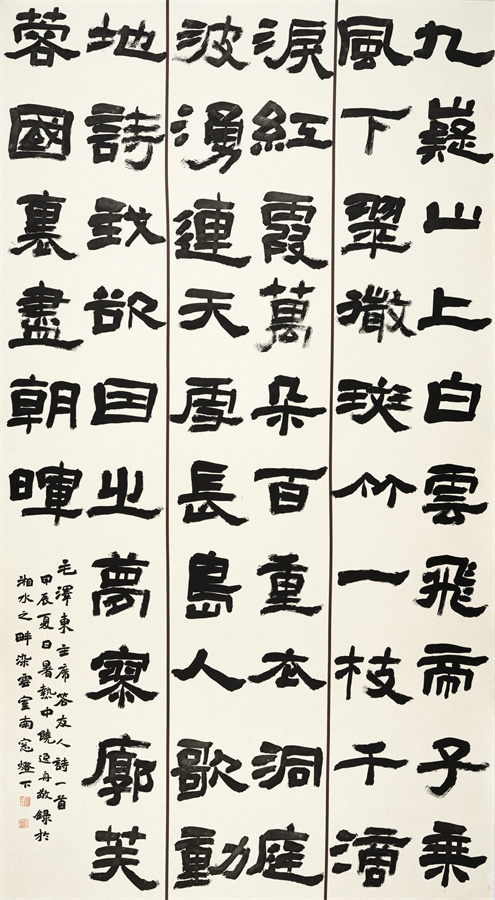 九嶷山上白雲飛帝子乘
風下翠微斑竹一枝千滴
淚紅霞萬朵百重衣洞庭
波湧連天雪長島人歌動
地詩我欲因之夢寥廓芙
蓉國裏盡朝暉
毛澤東主席答友人詩一首
甲辰夏日暑熱中饒逸舟敬錄於
湘水之畔染雲室南窓燈下